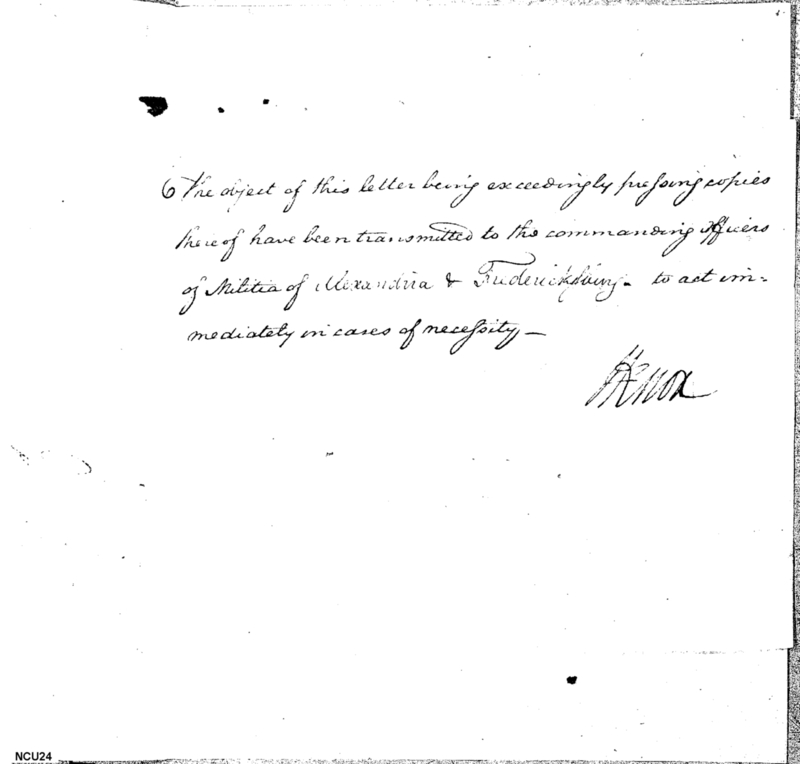 The object of this letter being exceedingly pressing copies
thereof have been transmitted to the commanding officers
of Militia of Alexandria & Fredericksburg - to act im-
mediately in cases of necessity -
HKnox
NCU24